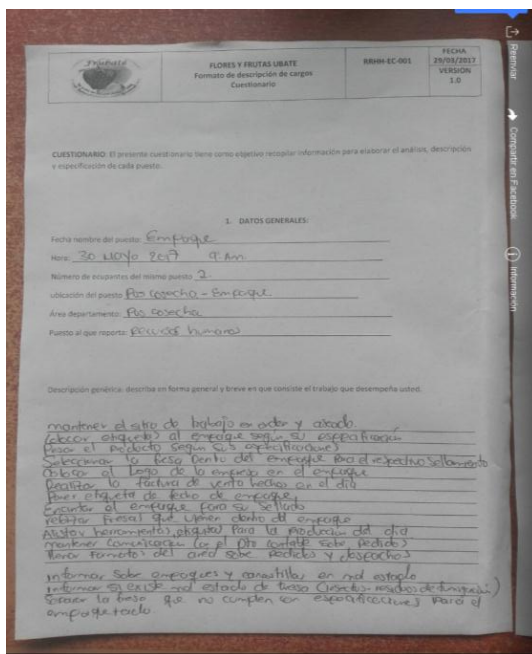 Frubaté
FLORES Y FRUTAS UBATE
Formato de descripción de cargos
Cuestionario
RRHH-EC-001
FECHA
29/03/2017
VERSION
1.0
CUESTIONARIO: El presente cuestionario tiene como objetivo recopilar información para elaborar el análisis, descripción
y especificación de cada puesto.
1. DATOS GENERALES:
Fecha nombre del puesto: Empaque
Hora: 30 Mayo 2017 9. Am.
Número de ocupantes del mismo puesto 2.
ubicación del puesto Pos cosecha - Empaque
Área departamento: Pos cosecha
Puesto al que reporta: Recursos humanos
Descripción genérica: describa en forma general y breve en que consiste el trabajo que desempeña usted.
mantener el sitio de trabajo en orden y aseado
Colocar etiquetas al empaque según su especificación
Pesar el producto según sus especificaciones
Seleccionar la fresa dentro del empaque para el respectivo Sellamiento
Colocar el Logo de la empresa en el empaque
Realizar la factura de venta hechas en el día
Poner etiqueta de fecha de empaque
Encintar el empaque para su Sellado
fresas que vienen dentro del empaque
Alistar herramientas, etiquetas Para la producción del día
mantener comunicación con el Dto contable sobre pedidos
llevar Formatos del area sobre pedidos y despachos
informar Sobre empaques y canastillas en mal estado
informar si existe mal estado de fresa (insectos residuos de fumigación)
Separar la fresa que no cumplen con especificaciones para el
empaquetado.
Reenviar
Compartir en Facebook
Información